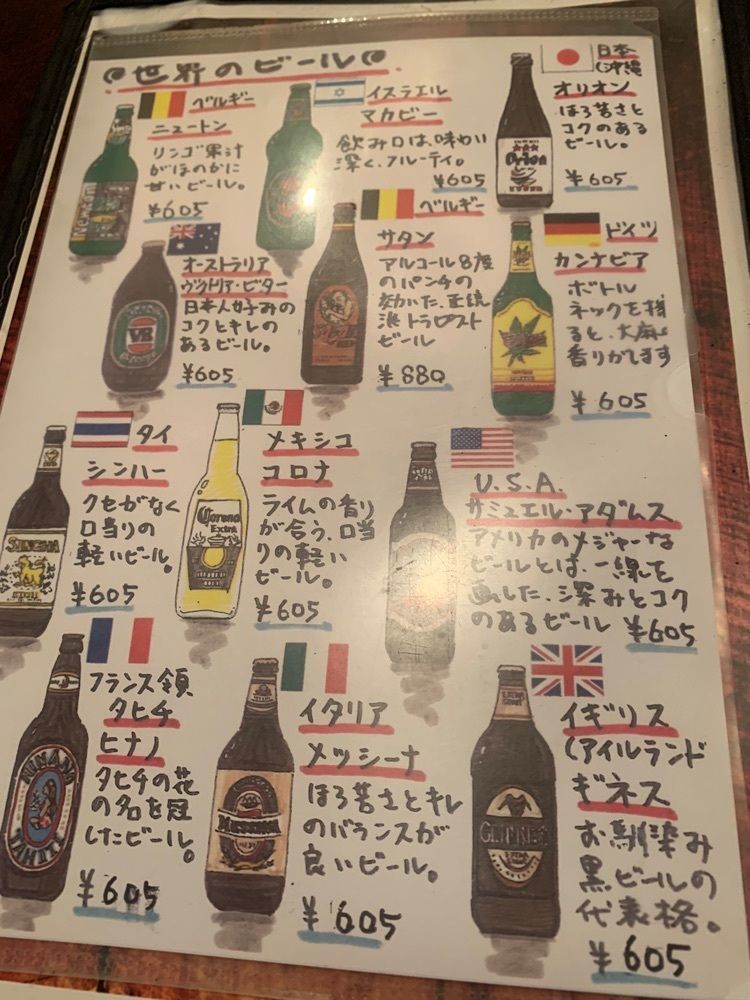 世界のビール
ベルギー
ニュートン
リンゴ果汁
がほのかに
甘いビール。
¥605
イスラエル
マカビー
飲み口は、味わい
深く、フルーティ。
¥605
日本
(沖縄
オリオン
ほろ苦さと
コクのある
ビール。
¥605
Orion
オーストラリア
ヴィクトリア・ビター
日本人好みの
コクとキレの
あるビール。
¥605
VB
ベルギー
サタン
アルコール8度
のパンチの
効いた、正統
派トラピスト
ビール
¥880
ドイツ
カンナビア
ボトル
ネックを捻
ると、大麻
香りがします
¥605
タイ
シンハー
クセがなく
口当りの
軽いビール。
¥605
SINGHA
メキシコ
コロナ
ライムの香り
が合う、口当
りの軽い
ビール。
¥605
Corona
Extra
U.S.A.
サミュエル・アダムス
アメリカのメジャーな
ビールとは、一線を
画した、深みとコク
のあるビール ¥605
フランス領
タヒチ
ヒナノ
タヒチの花
の名を冠
したビール。
¥605
HINANO
TAHITI
イタリア
メッシーナ
ほろ苦さとキレ
のバランスが
良いビール。
¥605
MESSINA
イギリス
(アイルランド
ギネス
お馴染み
黒ビールの
代表格。
¥605
GUINNESS